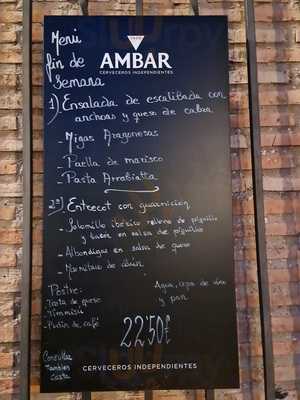 Menú
fin de
Semana
AMBAR
CERVECEROS INDEPENDIENTES
1) Ensalada de escalibada con
anchoas y queso de cabra
- Migas Aragonesas
- Paella de marisco
- Pasta Arrabiatta
2º) Entrecot con guarnición
- Solomillo ibérico relleno de piquillo
y bacon en salsa de piquillos
- Albondigas en salsa de queso
- Marmitaco de atún
Postre:
- Tarta de queso
- Timmisu
- Pudin de café
Agua, copa de vino
y pan
22'50€
Consultar
Tambien
Carta
CERVECEROS INDEPENDIENTES